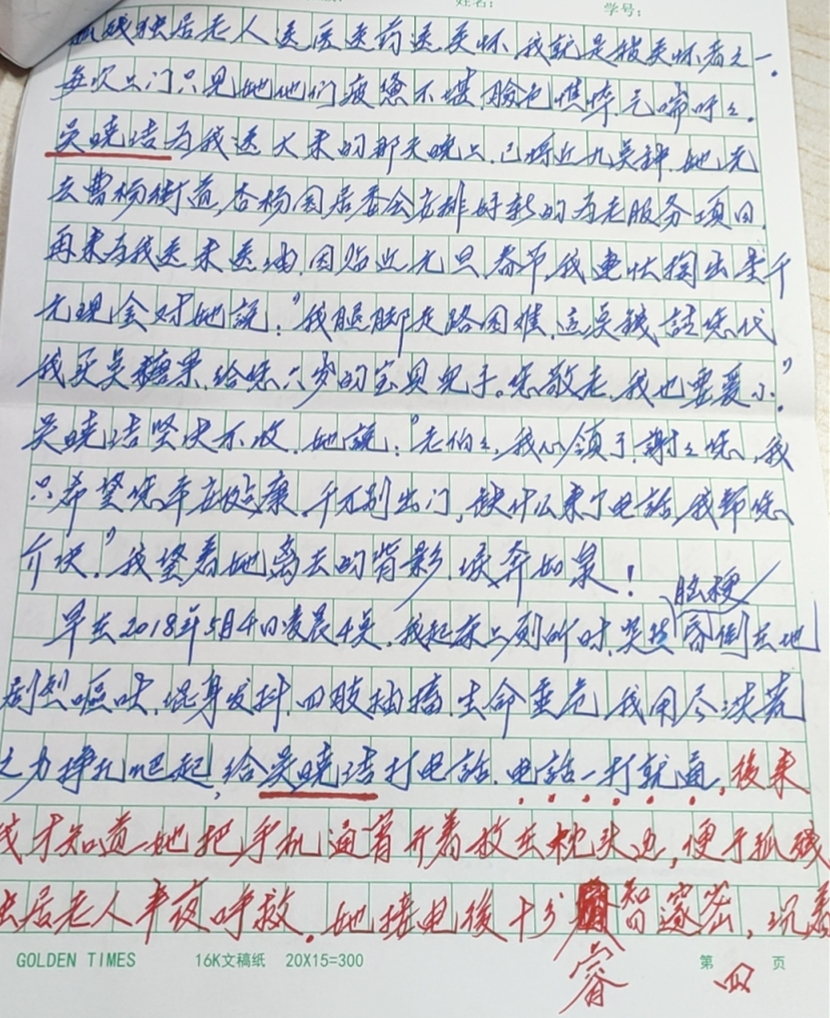 姓名： 学号：
孤残独居老人送医送药送关怀,我就是被关怀者之一.
每次上门只见她他们疲惫不堪,脸色憔悴,气喘呼々.
吴晓洁为我送大米的那天晚上,已将近九点钟,她先
去曹杨街道,杏杨园居委会安排好新的为老服务项目,
再来为我送米送油,因贴近元旦,春节,我连忙掏出壹千
元现金对她說:"我腿脚走路困难,這点钱請您代
我买点糖果,给您六岁的宝贝兒子。您敬老,我也要爱小."
吴晓洁坚决不收,她說:"老伯々,我心领了,謝々您,我
只希望您平安健康,千万别出门,缺什么来了电話,我帮您
介决."我望着她离去的背影,淚奔如泉!
脑梗
早在2018年5月4日凌晨4点,我起床上厕所时,突然昏倒在地
剧烈呕吐,混身发抖,四肢抽搐,生命垂危,我用尽洪荒
之力挣扎爬起,给吴晓洁打电話.电話一打就通,後来
我才知道她把手机通宵开着放在枕头边,便于孤残
独居老人半夜呼救.她接电後十分智邃密,沉着
睿
GOLDEN TIMES 16K文稿纸 20X15=300 第 四 页